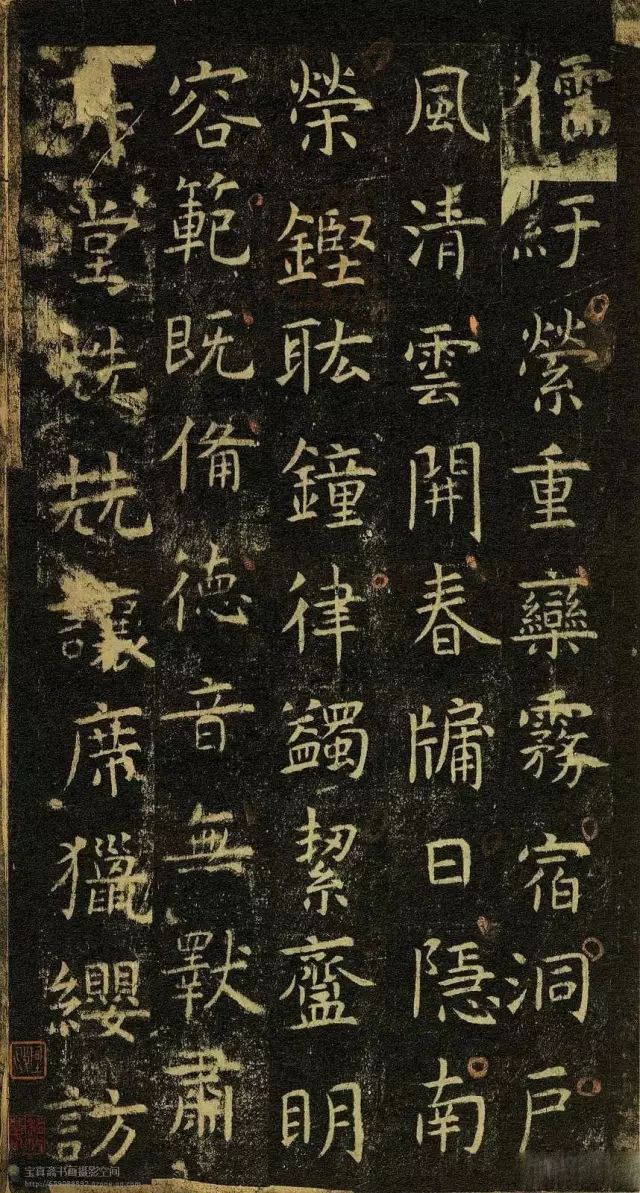 儒紆縈重欒霧宿洞戶
風清雲開春牖日隱南
榮鏗耾鐘律蠲絜齍明
容範既備德音無斁肅
堂兟兟讓席獵纓訪
宝真斋书画摄影空间